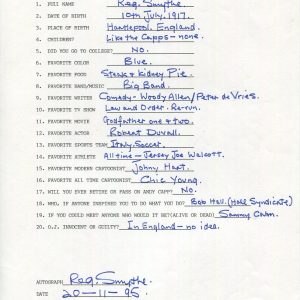 1. FULL NAME Reg. Smythe
2. DATE OF BIRTH 10th July. 1917.
3. PLACE OF BIRTH Hartlepool. England.
4. CHILDREN? Like the Capps - none.
5. DID YOU GO TO COLLEGE? No.
6. FAVORITE COLOR Blue.
7. FAVORITE FOOD Steak & Kidney Pie.
8. FAVORITE BAND/MUSIC Big Band.
9. FAVORITE WRITER Comedy - Woody Allen/Peter de Vries.
10. FAVORITE TV SHOW Law and Order. Re-run.
11. FAVORITE MOVIE Godfather one & two.
12. FAVORITE ACTOR Robert Duvall.
13. FAVORITE SPORTS TEAM Italy. Soccer.
14. FAVORITE ATHLETE All time - Jersey Joe Walcott.
15. FAVORITE MODERN CARTOONIST Johny Hart.
16. FAVORITE ALL TIME CARTOONIST Chic Young.
17. WILL YOU EVER RETIRE OR PASS ON ANDY CAPP? No.
18. WHO, IF ANYONE INSPIRED YOU TO DO WHAT YOU DO? Bob Hall. (Hall Syndicate)
19. IF YOU COULD MEET ANYONE WHO WOULD IT BE? (ALIVE OR DEAD) Sammy Cahn.
20. O.J. INNOCENT OR GUILTY? In England - no idea.
AUTOGRAPH Reg. Smythe.
DATE 20-11-95